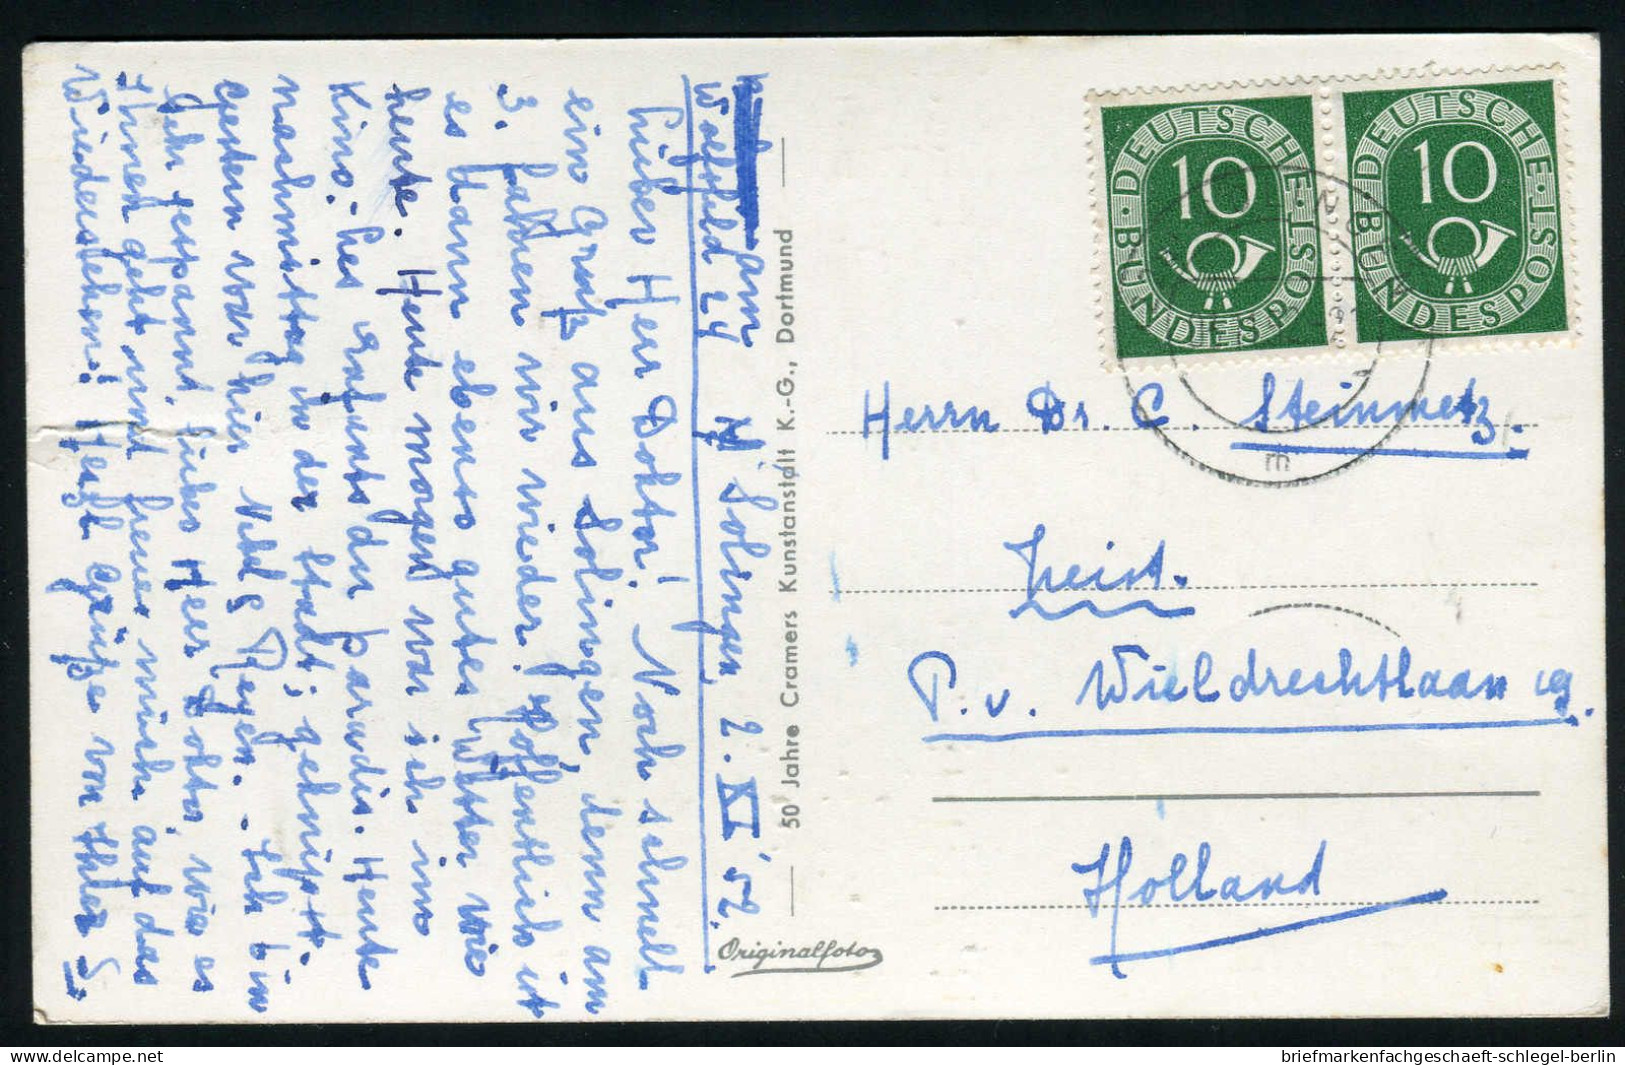 am
Wolfsfeld 24 Solingen, 2. XI. 52.
Lieber Herr Doktor! Noch schnell
ein Gruß aus Solingen, denn am
3. fahren wir wieder. Hoffentlich ist
es dann ebenso gutes Wetter wie
heute. Heute morgen war ich im
Kino: "Les enfants du paradis". Heute
nachmittag in der Stadt; geknipst.
Gestern war hier Nebel & Regen. - Ich bin
sehr gespannt, lieber Herr Doktor, wie es
Ihnen geht und freue mich auf das
Wiedersehen! Herzl. Grüße von Ihrer S
50 Jahre Cramers Kunstanstalt K.-G., Dortmund
Originalfoto
DEUTSCHE BUNDESPOST
10
DEUTSCHE BUNDESPOST
10
m
Herrn Dr. C. Steinmetz.
Zeist.
P. v. Wieldrechtlaan 19.
Holland
briefmarkenfachgeschaeft-schlegel-berlin